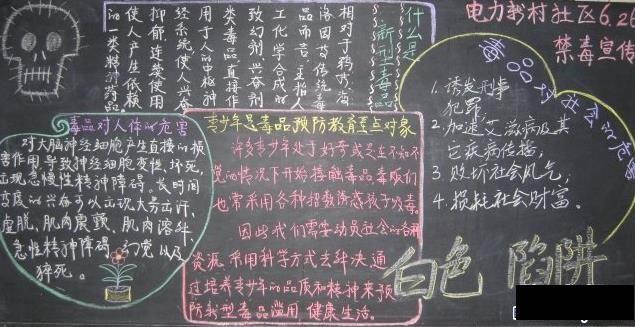 电力新村社区6.26
禁毒宣传
什么是
新型毒品
相对于鸦片、海
洛因等传统毒
品而言,主指人
工化学合成的
致幻剂、兴奋剂
类毒品直接作
用于人的中枢神
经系统使人兴奋
抑郁连续使用
使人产生依赖
的一类精神药品
毒品对人体的危害
对大脑神经细胞产生直接的损
害作用,导致神经细胞变性、坏死,
出现急慢性精神障碍。长时间
的兴奋可以出现大量出汗,
虚脱、肌肉震颤、肌肉溶解、
急性精神障碍、幻觉以及
猝死。
青少年是毒品预防教育重点对象
许多青少年处于好奇或是在不知不
觉的情况下开始接触毒品,毒贩们
也常采用各种招数诱惑孩子吸毒。
因此我们需要动员社会的各种
资源,采用科学方式去解决,通
过培养青少年的品质和精神来预
防新型毒品滥用 健康生活。
毒品对社会的危害
1. 诱发刑事
犯罪,
2. 加速艾滋病及其
它疾病传播,
3. 败坏社会风气,
4. 损耗社会财富。
白色 陷阱